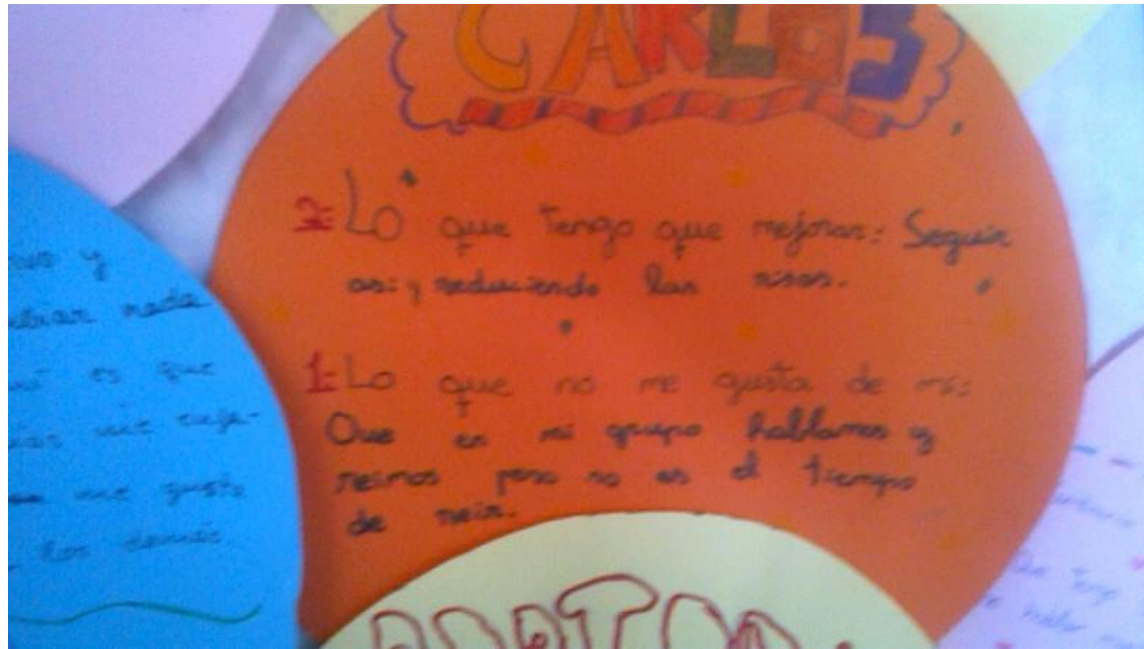 CARLOS
2: Lo que Tengo que mejorar: Seguir
así y reduciendo las risas.
1: Lo que no me gusta de mi:
Que en mi grupo hablamos y
reimos pero no es el tiempo
de reir.
y
nada
es que
me gusta
los demás